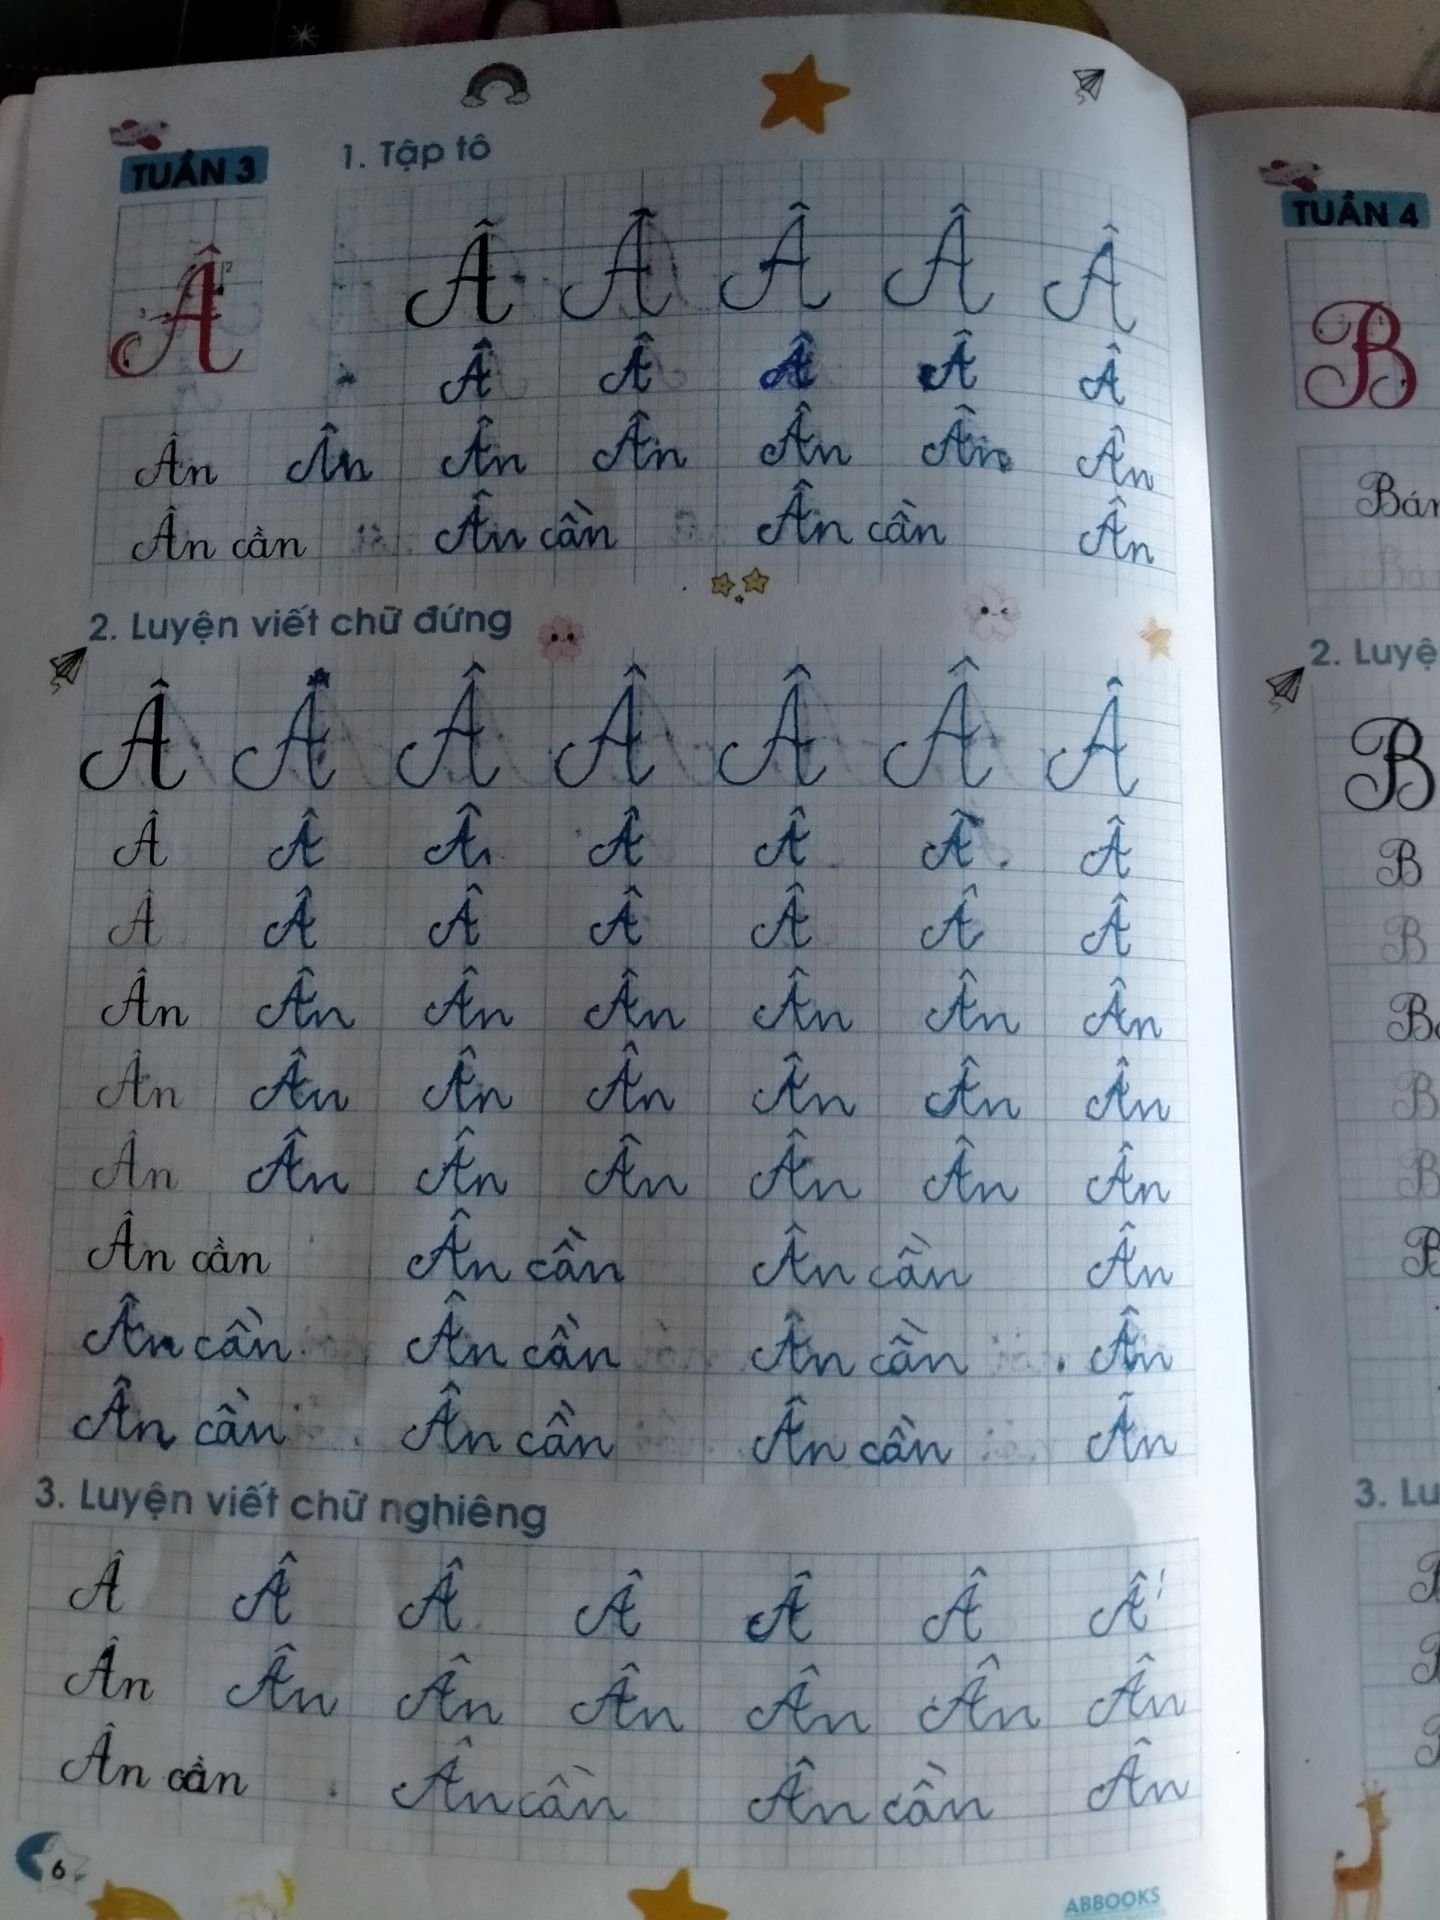 TUẦN 3
1. Tập tô
Â Â Â Â Â Â
Â Â Â Â Â
Ân Ân Ân Ân Ân Ân Ân
Ân cần Ân cần Ân cần Ân
2. Luyện viết chữ đứng
Â Â Â Â Â Â Â
Â Â Â Â Â Â Â
Â Â Â Â Â Â Â
Ân Ân Ân Ân Ân Ân Ân
Ân Ân Ân Ân Ân Ân Ân
Ân Ân Ân Ân Ân Ân Ân
Ân cần Ân cần Ân cần Ân
Ân cần Ân cần Ân cần Ân
Ân cần Ân cần Ân cần Ân
3. Luyện viết chữ nghiêng
Â Â Â Â Â Â Â
Ân Ân Ân Ân Ân Ân Ân
Ân cần Ân cần Ân cần Ân
6
ABBOOKS
TUẦN 4
B
2.
B
B
B
3.